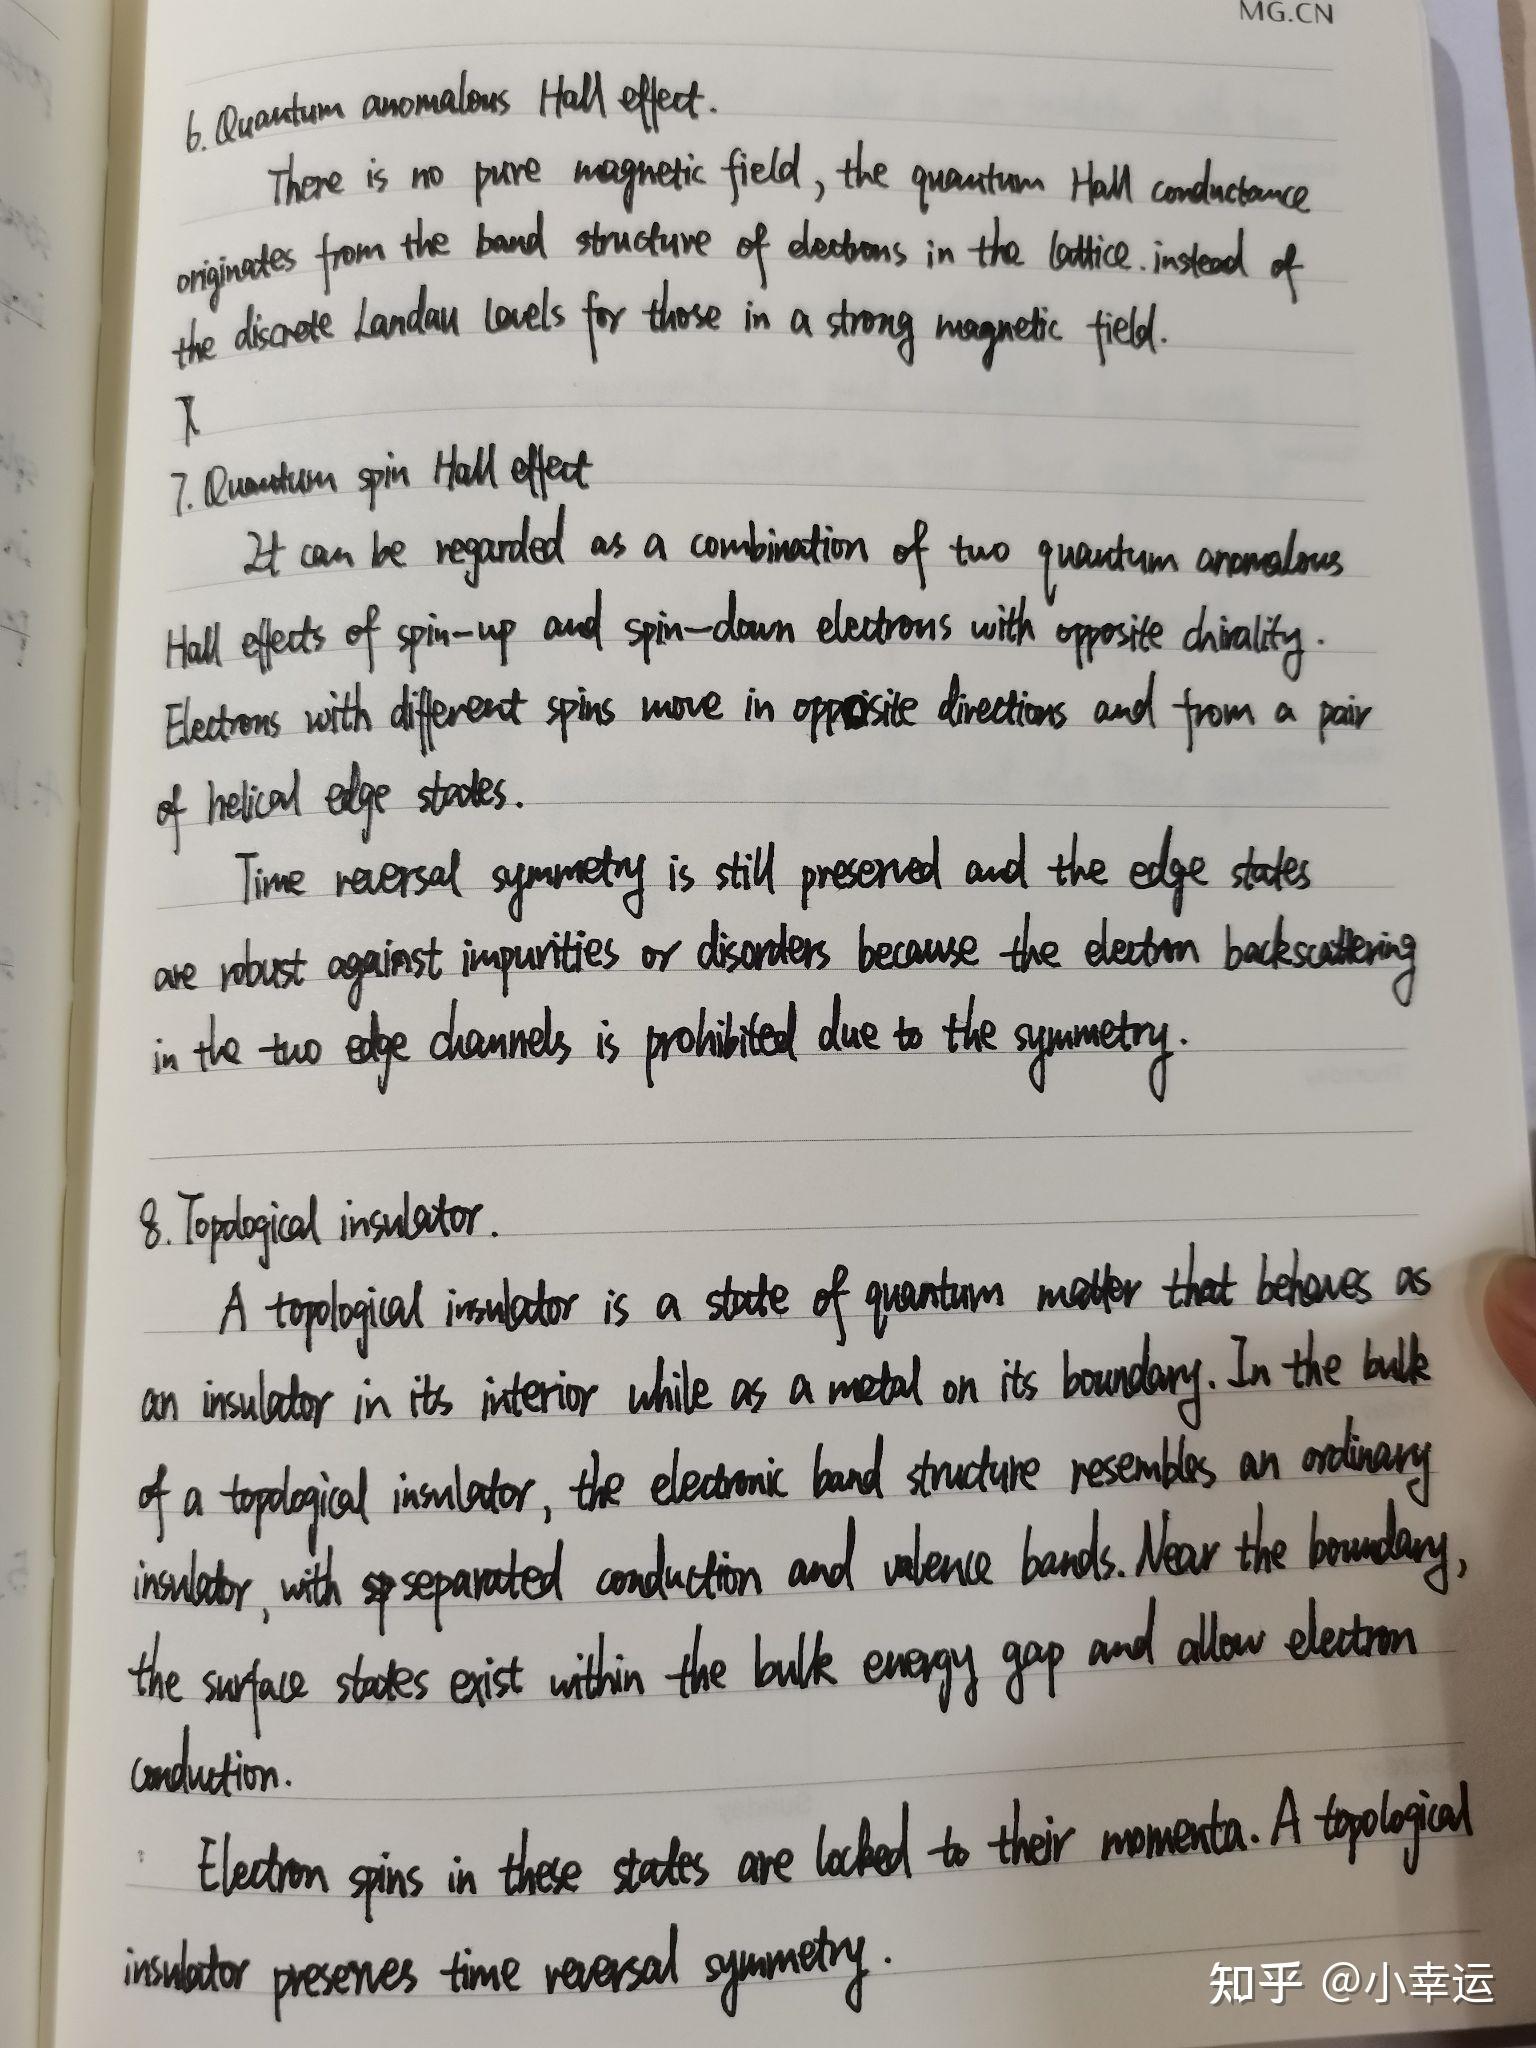 MG.CN
6. Quantum anomalous Hall effect.
There is no pure magnetic field, the quantum Hall conductance
originates from the band structure of electrons in the lattice. instead of
the discrete Landau levels for those in a strong magnetic field.
7. Quantum spin Hall effect
It can be regarded as a combination of two quantum anomalous
Hall effects of spin-up and spin-down electrons with opposite chirality.
Electrons with different spins move in opposite directions and from a pair
of helical edge states.
Time reversal symmetry is still preserved and the edge states
are robust against impurities or disorders because the electron backscattering
in the two edge channels is prohibited due to the symmetry.
8. Topological insulator.
A topological insulator is a state of quantum matter that behaves as
an insulator in its interior while as a metal on its boundary. In the bulk
of a topological insulator, the electronic band structure resembles an ordinary
insulator, with separated conduction and valence bands. Near the boundary,
the surface states exist within the bulk energy gap and allow electron
conduction.
Electron spins in these states are locked to their momenta. A topological
insulator preserves time reversal symmetry.
知乎 @小幸运